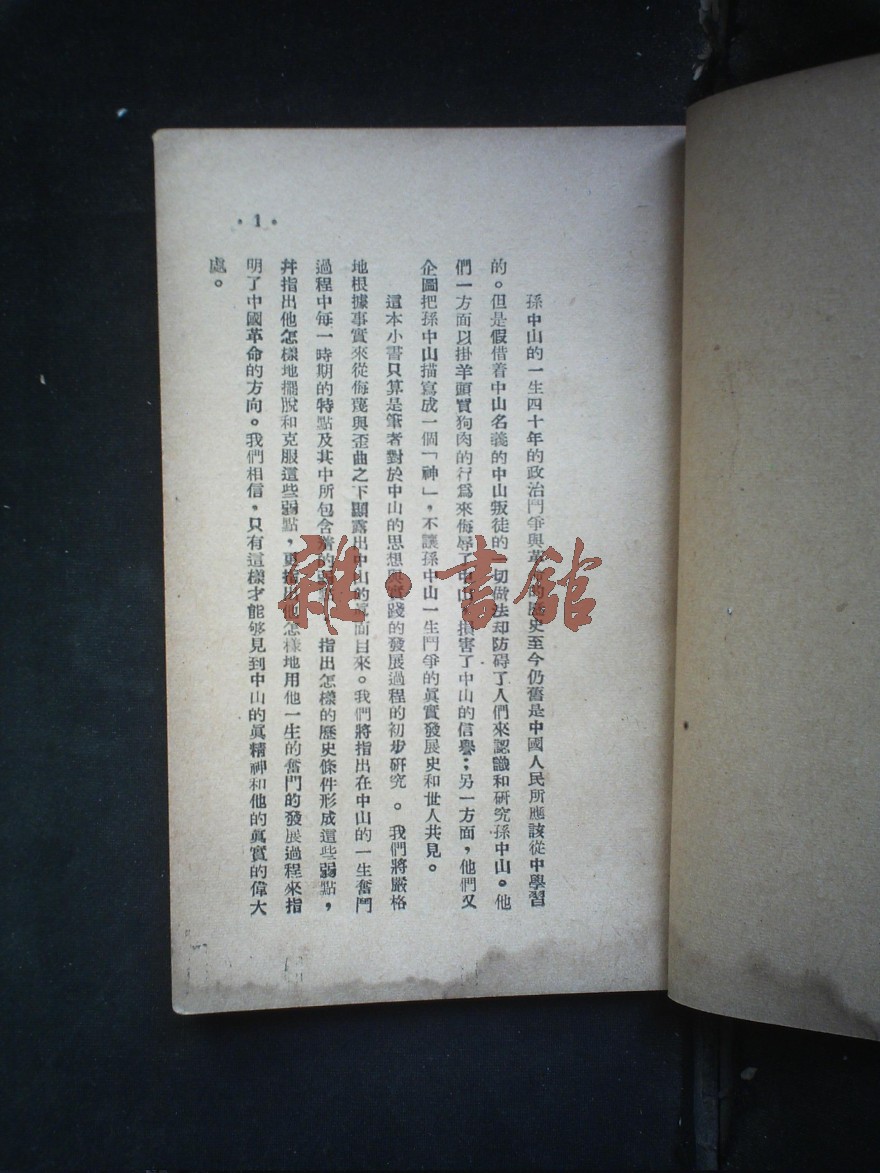 孫中山的一生四十年的政治鬥爭與革命的歷史至今仍舊是中國人民所應該從中學習
的。但是假借着中山名義的中山叛徒的一切做法却防碍了人們來認識和研究孫中山。他
們一方面以掛羊頭賣狗肉的行爲來侮辱了中山,損害了中山的信譽;另一方面,他們又
企圖把孫中山描寫成一個「神」,不讓孫中山一生鬥爭的眞實發展史和世人共見。
這本小書只算是筆者對於中山的思想與實踐的發展過程的初步研究。我們將嚴格
地根據事實來從侮蔑與歪曲之下顯露出中山的眞面目來。我們將指出在中山的一生奮鬥
過程中每一時期的特點及其中所包含着的弱點,指出怎樣的歷史條件形成這些弱點,
幷指出他怎樣地擺脫和克服這些弱點,更指出他怎樣地用他一生的奮鬥的發展過程來指
明了中國革命的方向。我們相信,只有這樣才能够見到中山的眞精神和他的眞實的偉大
處。
·1·
雜·書館